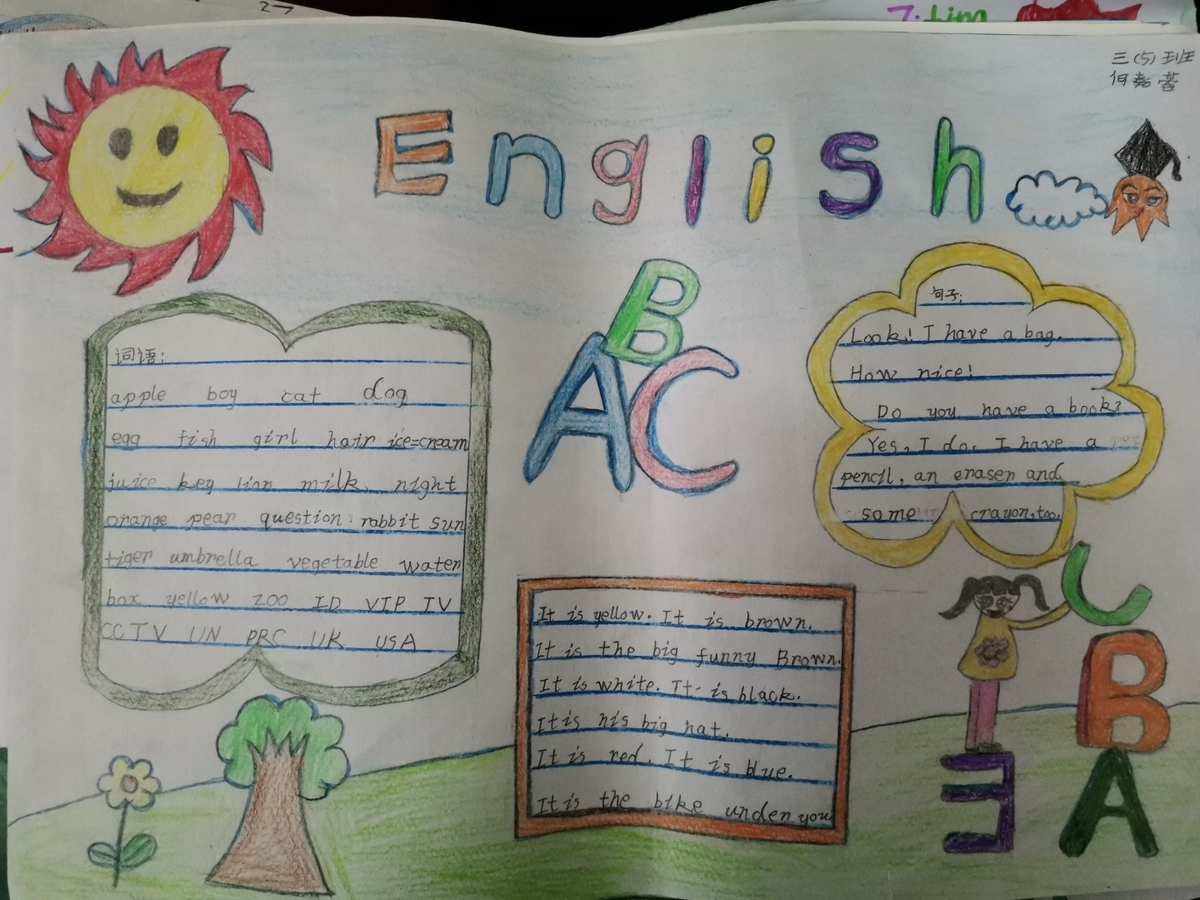 2→
7. tim
三(5)班
English
词语:
apple boy cat dog
egg fish girl hair ice=cream
juice key lion milk. night
orange pear question rabbit sun
tiger umbrella vegetable water
box yellow ZOO ID VIP TV
CCTV UN PRC UK USA
B
AC
句子:
Look! I have a bag.
How nice!
Do you have a book?
Yes, I do. I have a
pencil, an eraser and
some crayon, too.
It is yellow. It is brown.
It is the big funny Brown.
It is white. It is black.
It is his big hat.
It is red. It is blue.
It is the bike under you
C
B
A